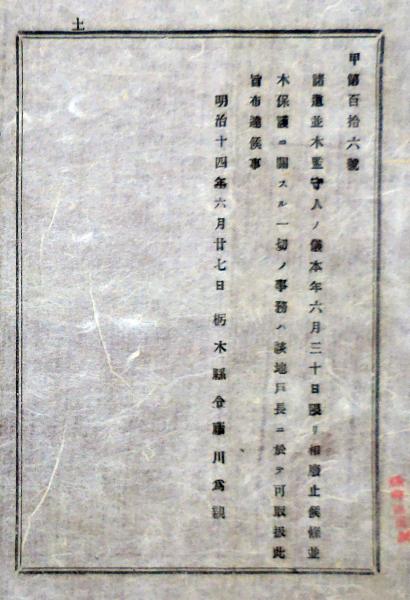 土
甲第百拾六號
諸道並木監守人ノ儀本年六月三十日限リ相廢止候條並
木保護ニ關スル一切ノ事務ハ該地戸長ニ於テ可取扱此
旨布達候事
明治十四年六月廿七日 栃木縣令藤川爲親